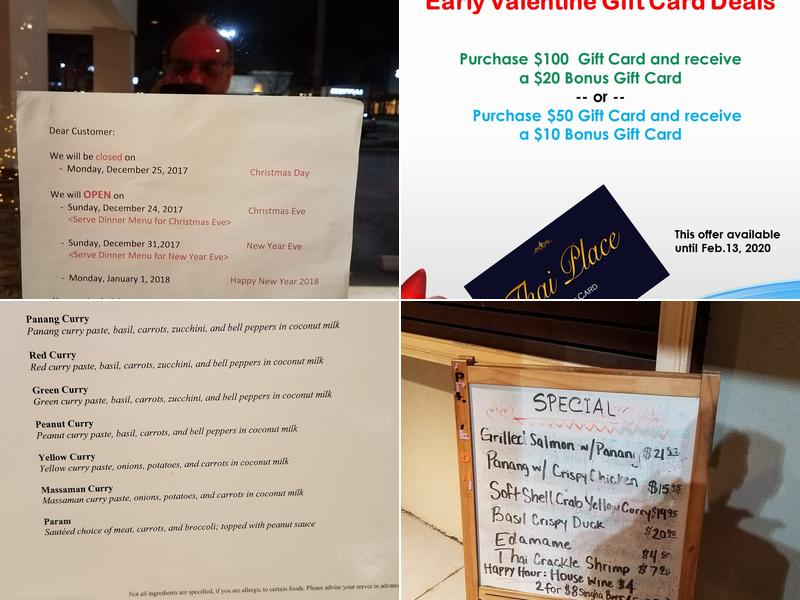 Dear Customer:
We will be closed on
- Monday, December 25, 2017 Christmas Day
We will OPEN on
- Sunday, December 24, 2017 Christmas Eve
<Serve Dinner Menu for Christmas Eve>
- Sunday, December 31,2017 New Year Eve
<Serve Dinner Menu for New Year Eve>
- Monday, January 1, 2018 Happy New Year 2018
Early Valentine Gift Card Deals
Purchase $100 Gift Card and receive
a $20 Bonus Gift Card
-- or --
Purchase $50 Gift Card and receive
a $10 Bonus Gift Card
This offer available
until Feb.13, 2020
Thai Place
CARD
Panang Curry
Panang curry paste, basil, carrots, zucchini, and bell peppers in coconut milk
Red Curry
Red curry paste, basil, carrots, zucchini, and bell peppers in coconut milk
Green Curry
Green curry paste, basil, carrots, zucchini, and bell peppers in coconut milk
Peanut Curry
Peanut curry paste, basil, carrots, and bell peppers in coconut milk
Yellow Curry
Yellow curry paste, onions, potatoes, and carrots in coconut milk
Massaman Curry
Massaman curry paste, onions, potatoes, and carrots in coconut milk
Param
Sautéed choice of meat, carrots, and broccoli; topped with peanut sauce
Not all ingredients are specified, if you are allergic to certain foods. Please advise your server in advanc
SPECIAL
Grilled Salmon w/Panang $21
Panang w/ Crispy Chicken $15.95
Soft Shell Crab Yellow Curry $19.95
Basil Crispy Duck $20.95
Edamame $4.50
Thai Crackle Shrimp $7.95
Happy Hour: House Wine $4
2 for $8 Singha Beer